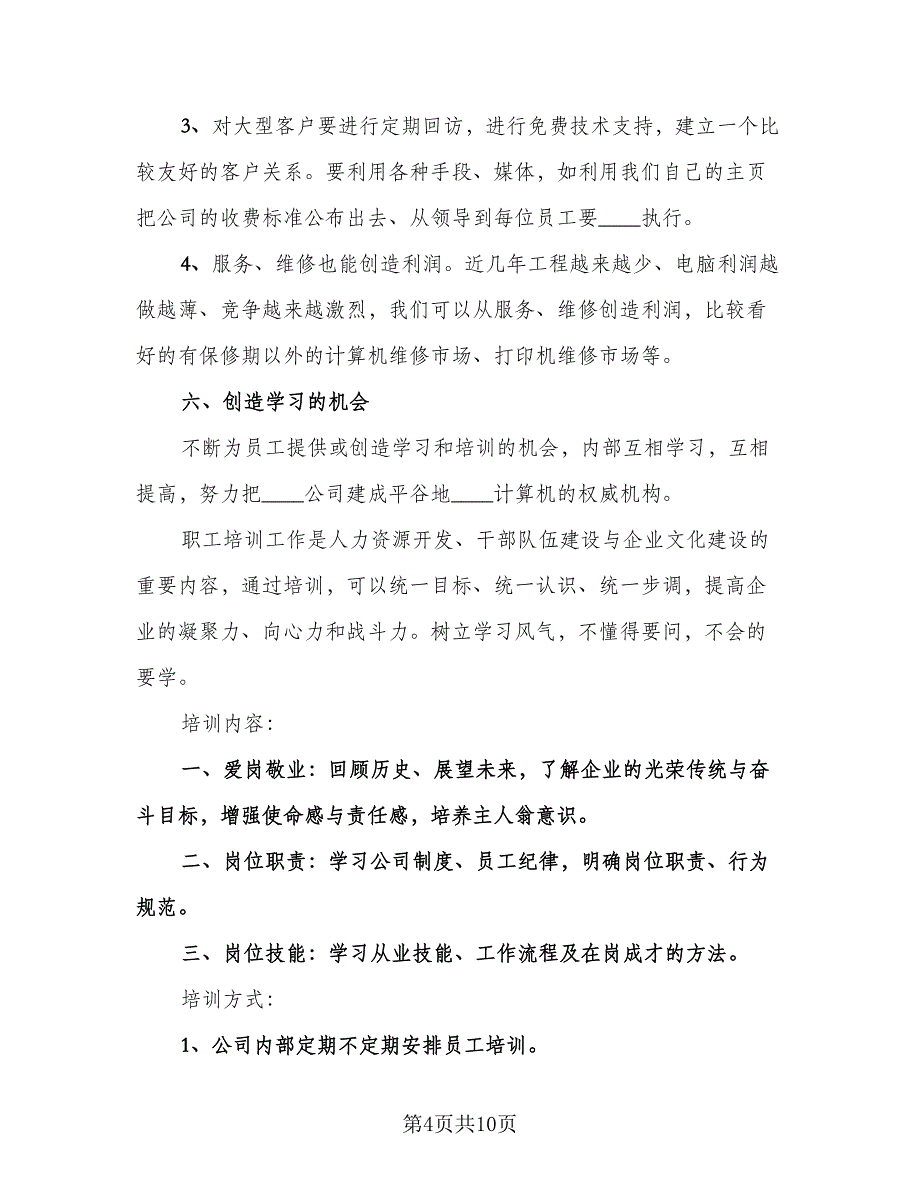 3、对大型客户要进行定期回访，进行免费技术支持，建立一个比
较友好的客户关系。要利用各种手段、媒体，如利用我们自己的主页
把公司的收费标准公布出去、从领导到每位员工要____执行。
4、服务、维修也能创造利润。近几年工程越来越少、电脑利润越
做越薄、竞争越来越激烈，我们可以从服务、维修创造利润，比较看
好的有保修期以外的计算机维修市场、打印机维修市场等。
六、创造学习的机会
不断为员工提供或创造学习和培训的机会，内部互相学习，互相
提高，努力把____公司建成平谷地____计算机的权威机构。
职工培训工作是人力资源开发、干部队伍建设与企业文化建设的
重要内容，通过培训，可以统一目标、统一认识、统一步调，提高企
业的凝聚力、向心力和战斗力。树立学习风气，不懂得要问，不会的
要学。
培训内容：
一、爱岗敬业：回顾历史、展望未来，了解企业的光荣传统与奋
斗目标，增强使命感与责任感，培养主人翁意识。
二、岗位职责：学习公司制度、员工纪律，明确岗位职责、行为
规范。
三、岗位技能：学习从业技能、工作流程及在岗成才的方法。
培训方式：
1、公司内部定期不定期安排员工培训。
第4页共10页